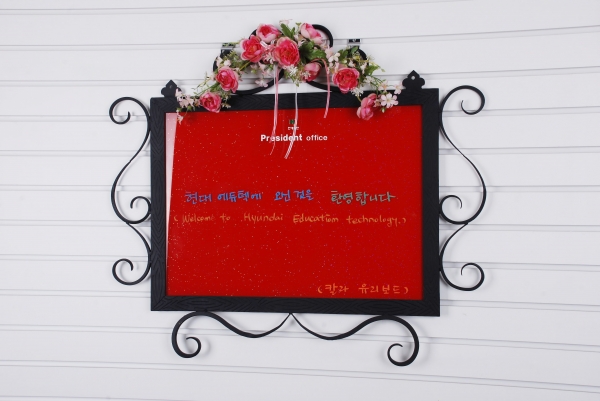 President office
현대 에듀텍에 오신 걸을 환영합니다
(Welcome to Hyundai Education technology.)
(칼라 유리보드)